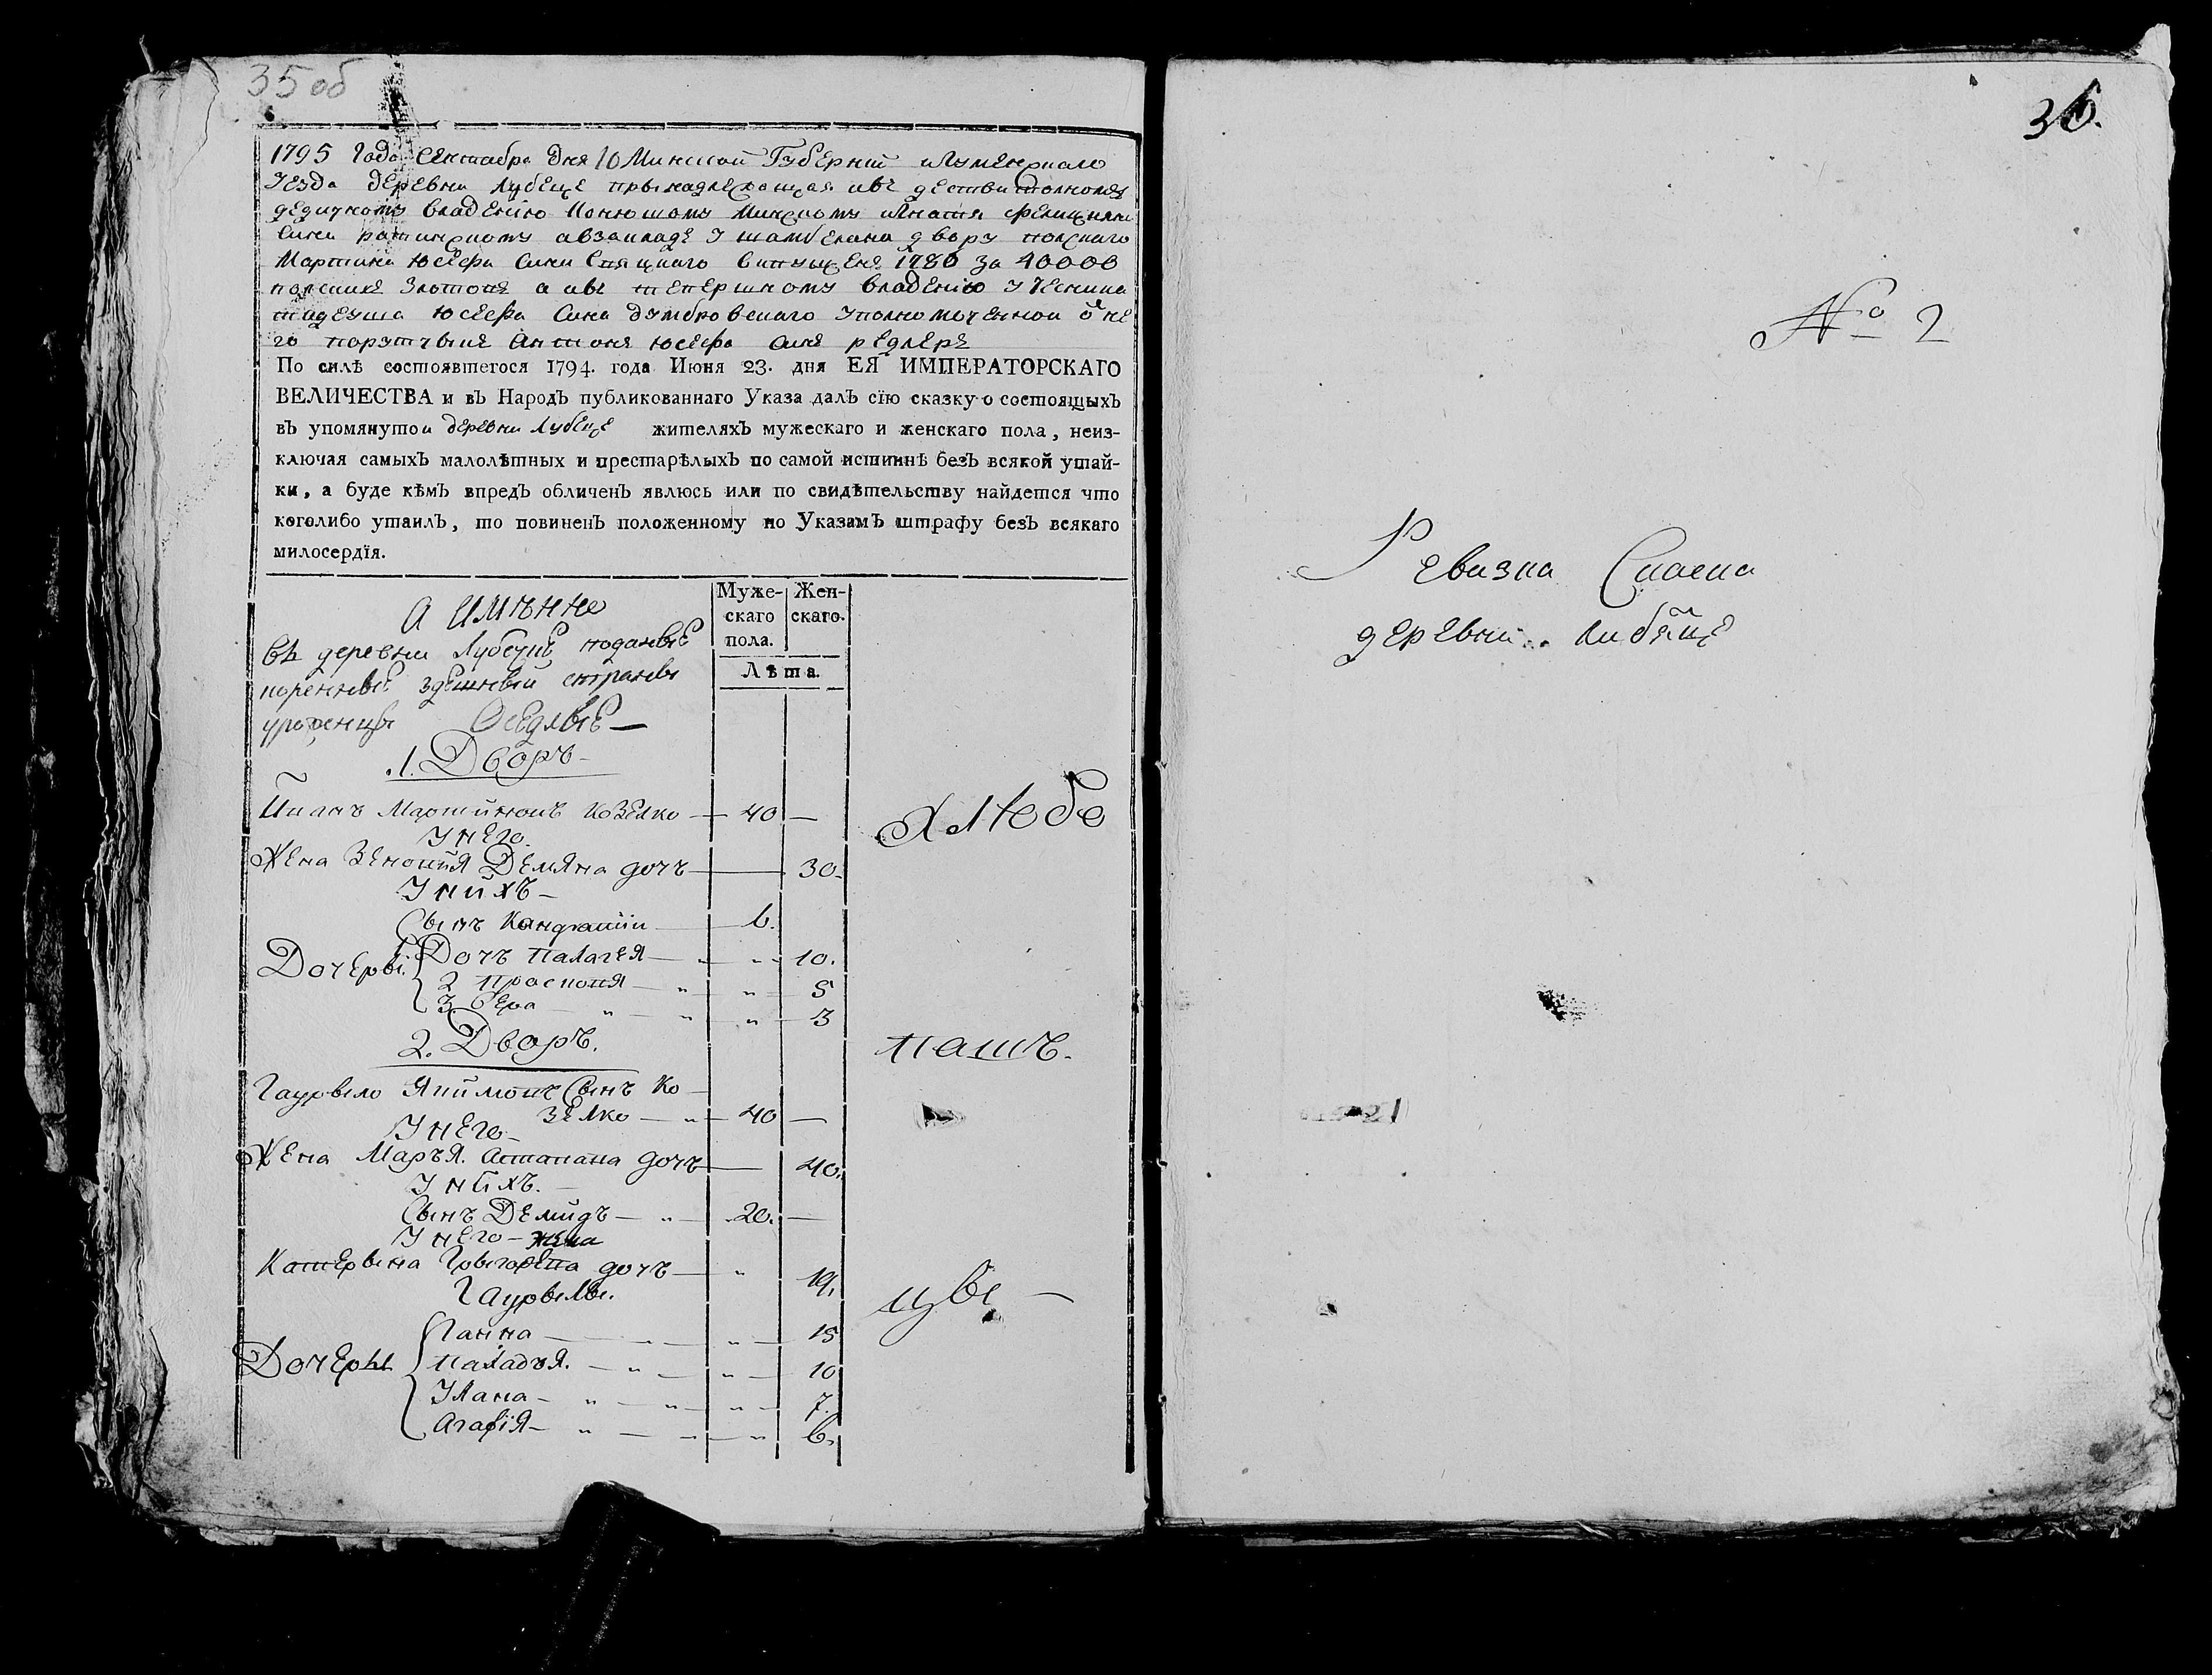 35 об
1795 Года Сентабра Дня 10 Минской Губернии Игуменскаго
Уезда деревни Лубеще прынадлежащая
владению Конюшому Минскому
Сина двору полскаго
Мартина Юсефа Сина 1780 за 40000
полских Злотоих а ивъ теперишному владению
тадеуша Юсефа Сина думбровскаго Уполномоченнои о не
го Антоня Юсефа Синъ редлеръ
По силѣ состоявшегося 1794. года Июня 23. дня ЕЯ ИМПЕРАТОРСКАГО
ВЕЛИЧЕСТВА и въ Народъ публикованнаго Указа далъ сїю сказку о состоящыхъ
въ упомянутои деревни Лубеще жителяхъ мужескаго и женскаго пола, неиз-
ключая самыхъ малолѣтныхъ и престарѣлыхъ по самой истиннѣ безъ всякой утай-
ки, а буде кѣмъ впредъ обличенъ явлюсь или по свидѣтельству найдется что
коголибо утаилъ, то повиненъ положенному по Указамъ штрафу безъ всякаго
милосердїя.
А имѣнно
Въ деревни Лубещѣ поданые
коренные здешный страны
уроженцы Оседлые —
Муже- Жен-
скаго скаго.
пола.
Лѣта.
.1. Дворъ —
Иванъ Мартиновъ Козелко — 40 —
У него.
Жена Зеновия Демяна дочъ — 30.
У нихъ —
Сынъ Кандратїи — 6.
Дочеры. 1 Дочъ Палагея — 10.
2 Праскопя — 5
3 Вера — 3
Хлебо
2. Дворъ.
пашъ.
Гаурыло Япимовъ Сынъ Ко-
зелко — 40 —
У него —
Жена Маръя. Астапана дочъ — 40.
У нихъ. —
Сынъ Демидъ — 20. —
У него — жена
Катерына Грыгорева дочъ — 19.
Гаурылы.
цы —
Дочеры Ганна — 15
Паладъя. — 10
Улана — 7.
Агафїя — 6.
36.
№ 2
Ревизка Сказка
деревни Любяще